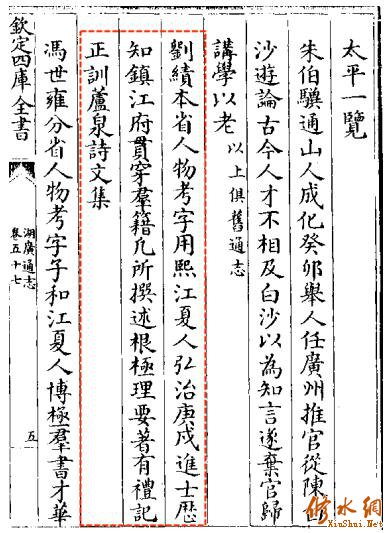 太平一覽
朱伯驥通山人成化癸卯舉人任廣州推官從陳白
沙遊論古今人才不相及白沙以為知言遂棄官歸
講學以老以上俱舊通志
劉績本省人物考字用熙江夏人弘治庚戌進士歷
知鎮江府貫穿羣籍凡所撰述根極理要著有禮記
正訓蘆泉詩文集
馮世雍分省人物考字子和江夏人博極羣書才華
欽定四庫全書
湖廣通志
卷五十七
五
修水網
XiuShui.Net